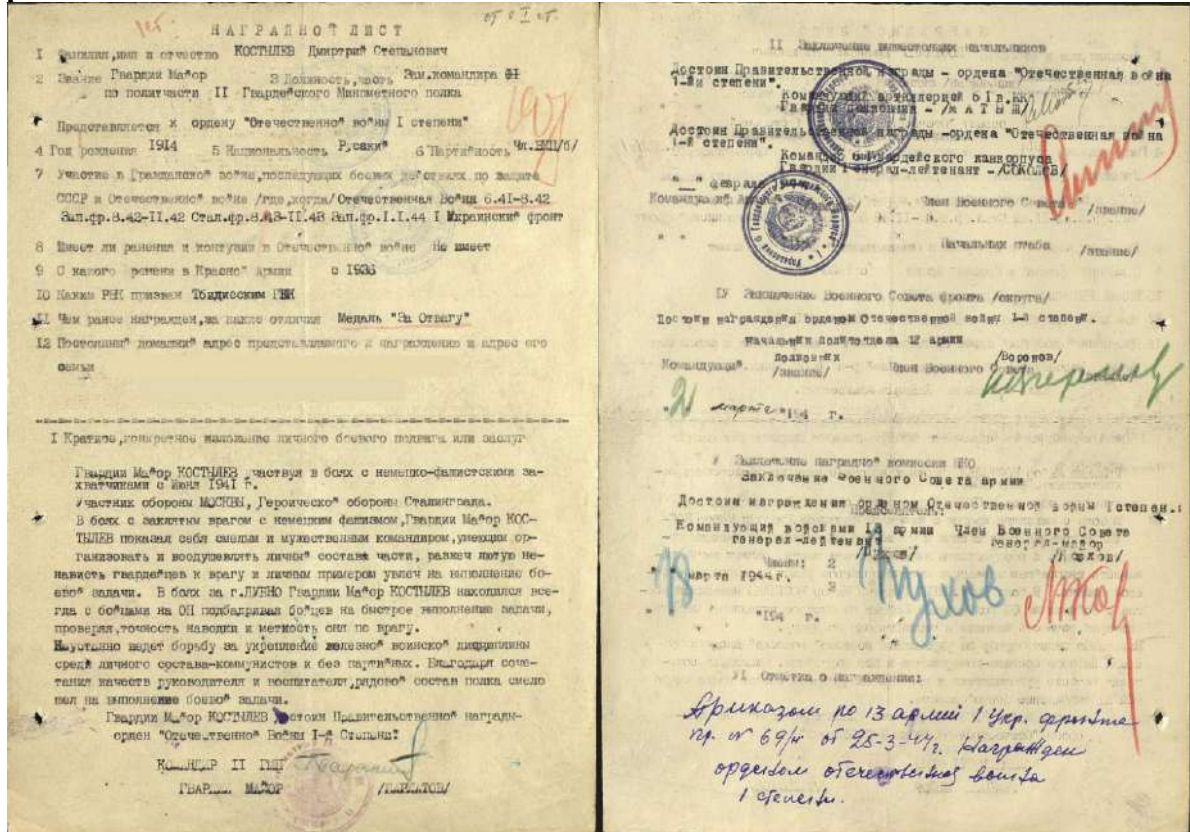 НАГРАДНОЙ ЛИСТ
I Фамилия,имя и отчество КОСТЫЛЕВ Дмиртрий Степанович
2 Звание Гвардии Майор 3 Должность,часть Зам.командира
по политчасти II Гвардейского Минометного полка
Представляется к ордену "Отечественной войны I степени"
4 Год рождения 1914 5 Национальность Русский 6 Партийность Чл.ВКП/б/
7 Участие в Гражданской войне,последующих боевых действиях по защите
СССР и Отечественной войне /где,когда/ Отечественная Война 6.41-8.42
Зап.фр.8.42-II.42 Стал.фр. Зап.фр.I.I.44 I Украинский фронт
8 Имеет ли ранения и контузии в Отечественной войне Не имеет
9 С какого времени в Красной Армии с 1936
IO Каким РВК призван Тбилисским ГВК
II Чем ранее награжден,за какие отличия Медаль "За Отвагу"
I2 Постоянный домашний адрес представляемого к награждению и адрес его
семьи
I Краткое,конкретное изложение личного боевого подвига или заслуг
Гвардии Майор КОСТЫЛЕВ участвуя в боях с немецко-фашистскими за-
хватчиками с Июня 1941 г.
Участник обороны МОСКВЫ, Героической обороны Сталинграда.
В боях с заклятым врагом с немецким фашизмом,Гвардии Майор КОС-
ТЫЛЕВ показал себя смелым и мужественным командиром,умеющим ор-
ганизовать и воодушевлять личный состав части, разжеч лютую не-
нависть гвардейцев к врагу и личным примером увлеч на выполнение бо-
евой задачи. В боях за г.ДУБНО Гвардии Майор КОСТЫЛЕВ находился все-
гда с бойцами на ОП подбадривал бойцев на быстрое выполнение задачи,
проверяя,точность наводки и меткость огня по врагу.
Неустанно ведет борьбу за укрепление железной воинской дисциплины
среди личного состава-коммунистов и без партийных. Благодаря соче-
тания качеств руководителя и воспитателя,рядовой состав полка смело
шел на выполнение боевой задачи.
Гвардии Майор КОСТЫЛЕВ достоин Правительственной награды-
орден "Отечественной Войны I-й Степени"
КОМАНДИР II ГМП
ГВАРДИИ МАЙОР
II Заключение вышестоящих начальников
Достоин Правительственной награды - ордена "Отечественная война
1-й степени".
Командующий артиллерией 6
Гвардии Полковник -
Достоин Правительственной награды -ордена "Отечественная война
1-й степени".
Командир 6 гвардейского кавкорпуса
Гвардии Генерал-лейтенант - /СОКОЛОВ/
" " февраля
Член Военного Совета
/звание/
Начальник штаба
/звание/
IУ Заключение Военного Совета фронта /округа/
Достоин награждения орденом Отечественной войны 1-й степени.
Начальник политотдела 13 армии
Полковник /Воронов/
Командующий Член Военного Совета
/звание/
"2" марта 194 г.
У Заключение наградной комиссии НКО
Заключение Военного Совета армии
Достоин награждения орденом Отечественной Войны Iстепени.
Командующий войсками 13 армии Член Военного Совета
генерал-лейтенант генерал-майор
/Пухов/ /Козлов/
Члены: 2
марта 1944г. 3
Пухов
"194 г.
УI Отметка о награждении:
Приказом по 13 армий 1 Укр. фронта
пр. № 69/н от 25-3-44г. Награжден
орденом отечественной война
1 степени.